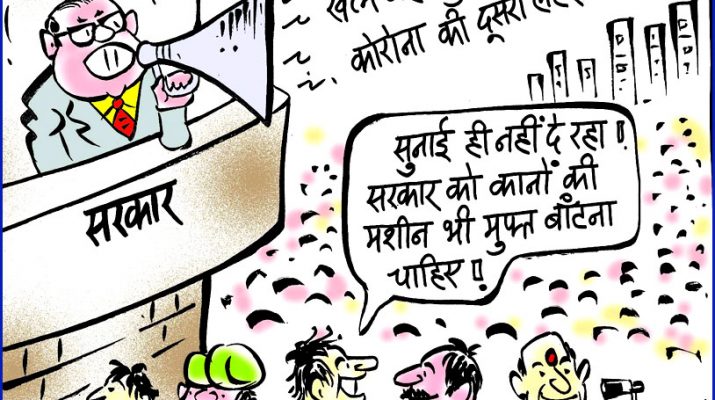 कोरोना की दूसरी लहर
सुनाई ही नहीं दे रहा !!
सरकार को कानों की
मशीन भी मुफ्त बाँटना
चाहिए !!
सरकार